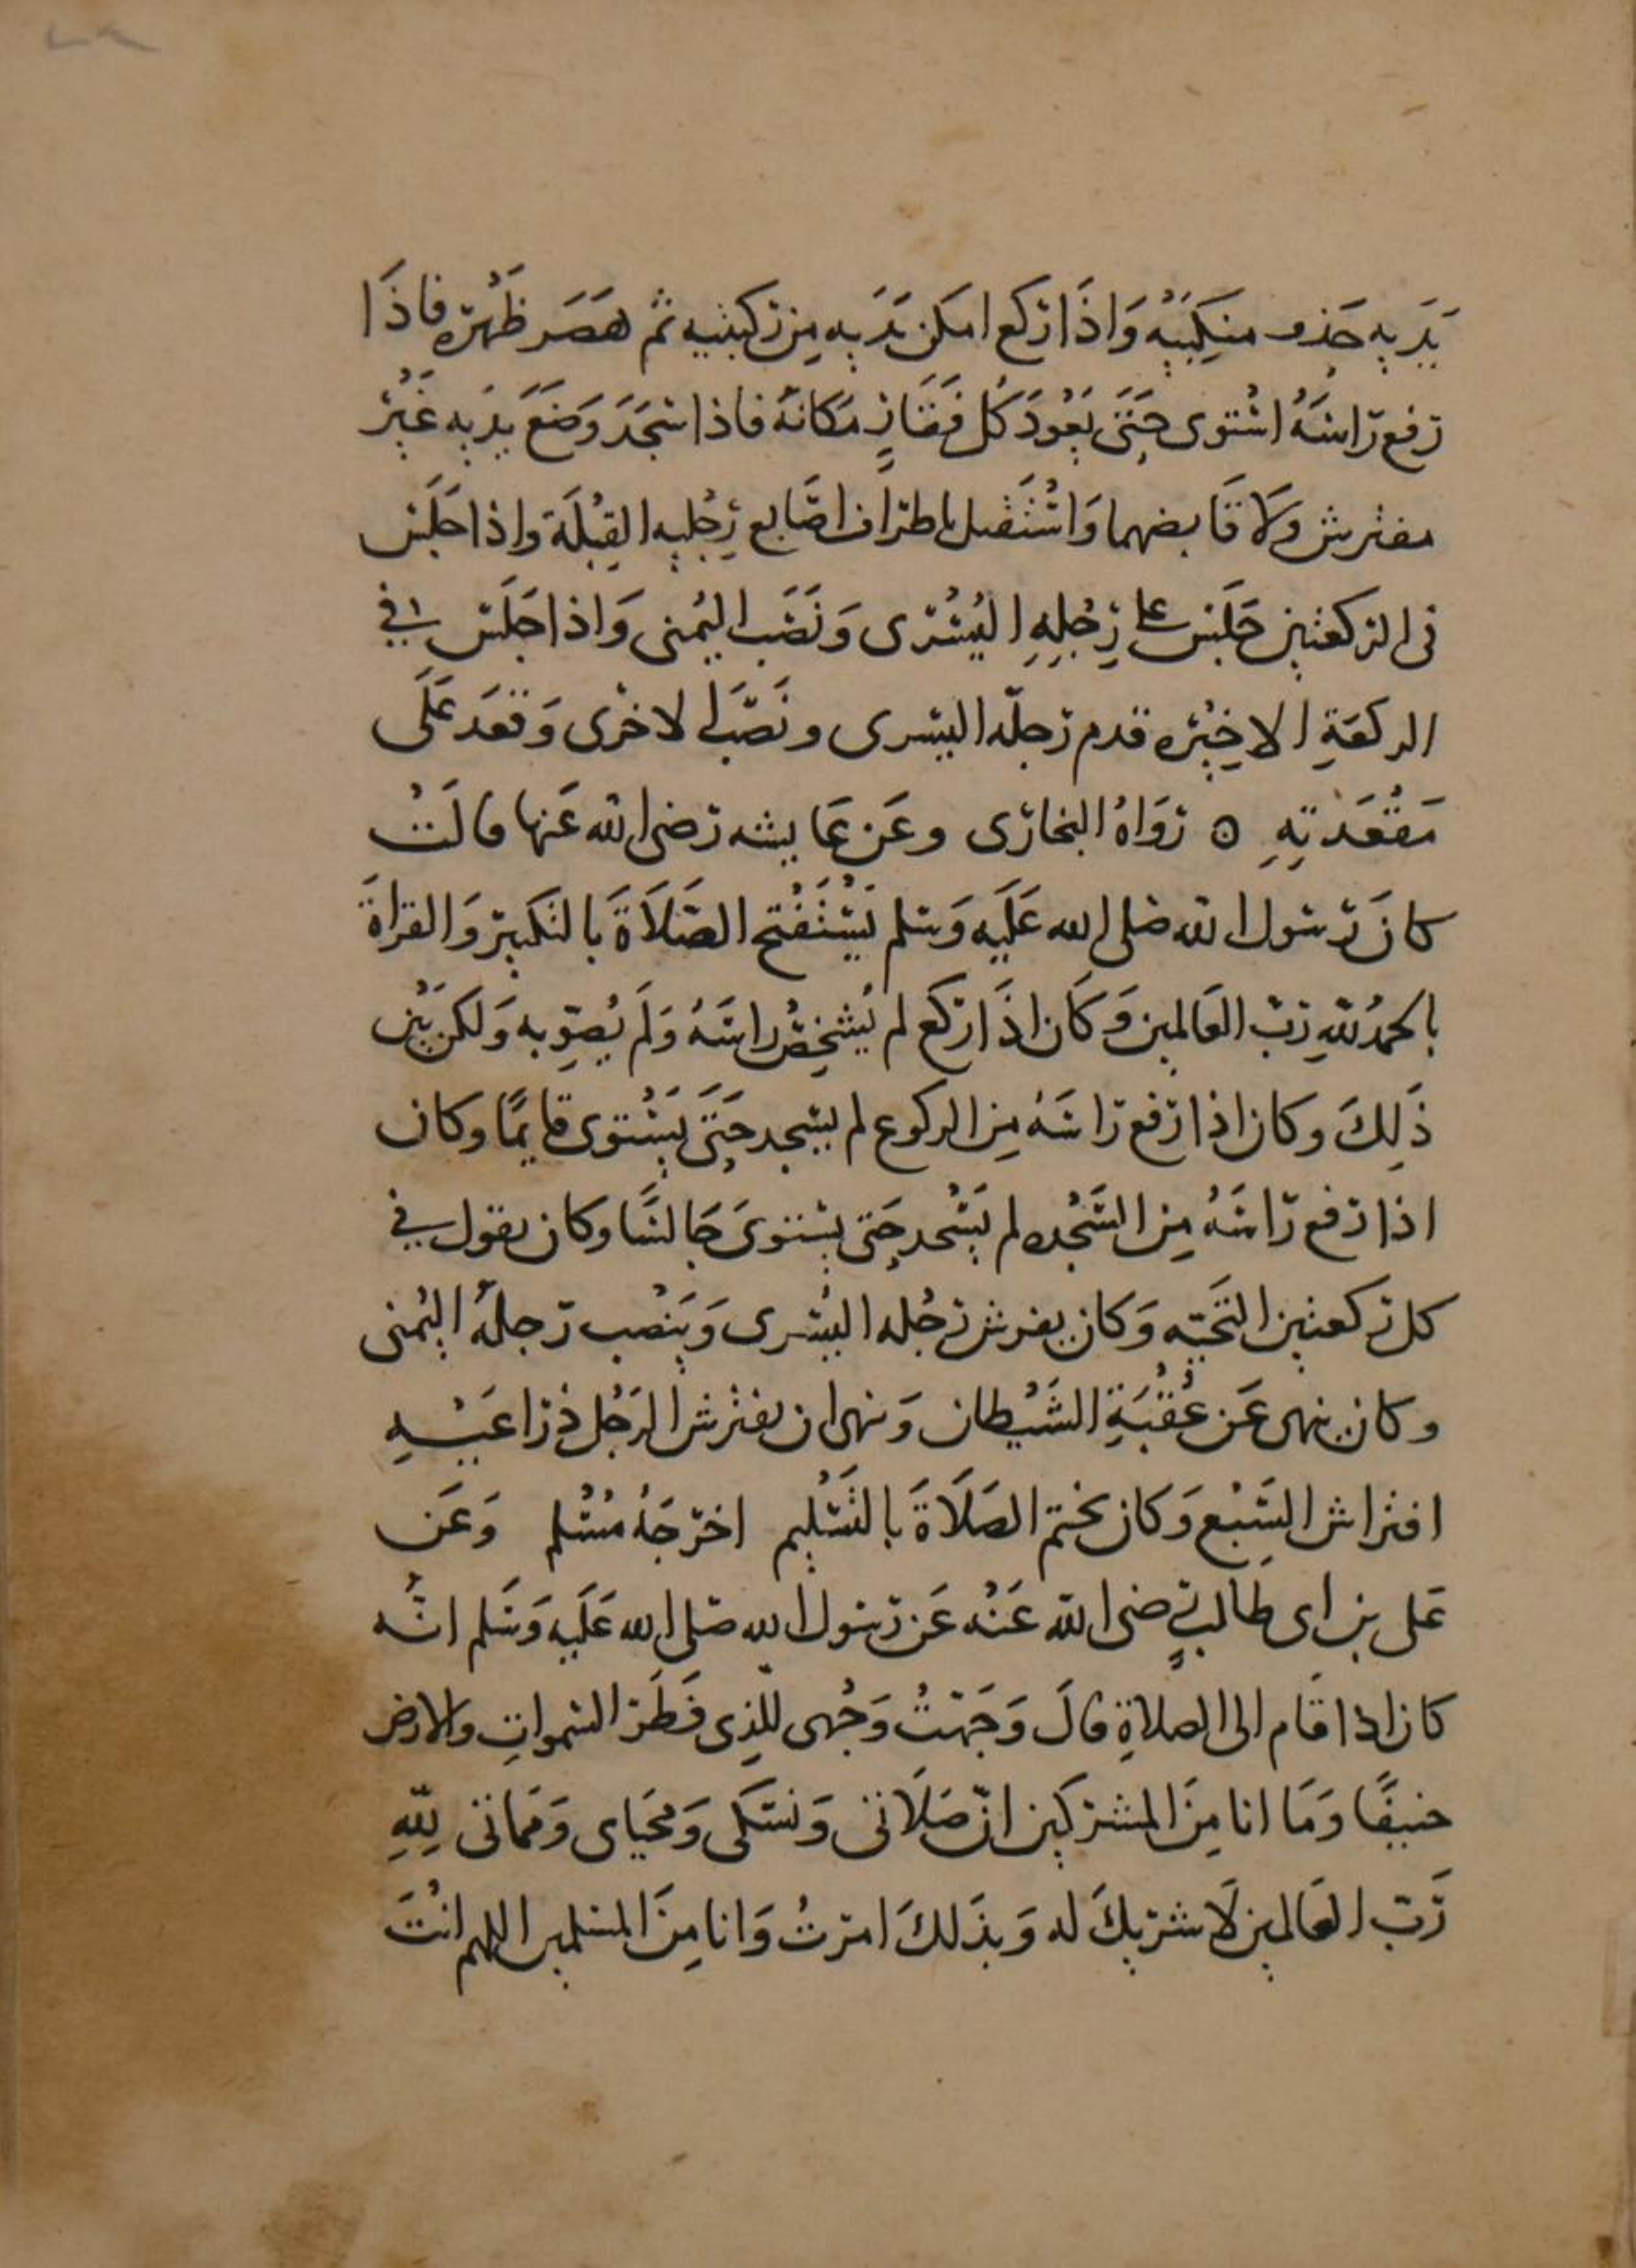 يَدَيهِ حَذو منكِبَيْهِ وَاذَا ركع امكَن يَدَيهِ مِن ركبتيه ثم هَصَر ظَهْرَه فاذَا
رَفع رَاسَهُ اسْتوى حَتَى يَعُودَ كُل فَقَارٍ مَكانهُ فاذا سَجَدَ وَضَعَ يدَيه غَيْرَ
مفترش وَلا قَابضهما وَاسْتَقبل باطراف اصَابع رِجْليهِ القِبْلَة واذا جَلَس
فى الركعتين جَلَسَ على رِجْلِهِ اليُسْرى وَنَصَب اليُمنى وَاذا جَلَسَ في
الركعَةِ الاخِيْره قدم رجلَه اليسرى ونَصَبَ الاخرى وَقعَد عَلَى
مَقْعَدتِهِ ه رَوَاهُ البخارى وعَن عَايشه رَضى الله عَنها قالَتْ
كانَ رَسول الله صَلى الله عَلَيه وَسلم يَسْتَفْتح الصَلَاةَ بالتكبير وَالقراةَ
بالحمدُ للهِ رَبّ العَالمين وَكَان اذَا ركَع لم يُشْخِصْ راسَهُ وَلَم يُصَوِّبه وَلكن بَيْن
ذَلِكَ وكان اذا رَفع رَاسَهُ مِن الركوع لم يسجد حَتَى يَسْتوى قايمًا وكان
اذا رَفع رَاسَهُ مِن السَجْده لم يَسْجد حَتى يستوىَ جَالسًا وكان يقول في
كل ركعتين التَحيَه وَكان يفرش رجْله اليُسرى وَيَنْصب رجلهُ اليُمنى
وكان ينهى عَن عُقْبَةِ الشَيْطان وَنهى ان يفترش الرَجُل ذراعَيْهِ
افتراش السَبْع وَكان يختم الصَلَاةَ بالتَسْليم اخرجَهُ مُسْلم وَعَن
عَلى بن ابى طَالبٍ رضى الله عَنْه عَن رَسول الله صَلى الله عَلَيه وَسَلم انَّه
كان اذا قَام الى الصلاةِ قالَ وَجَهْتُ وَجْهى للَّذِى فَطَرَ السَمواتِ والارض
حَنيفًا وَمَا انا مِنَ المشركين انّ صَلَاتى وَنسَكى وَمحيَاى وَمَماتى لِلّهِ
رَبّ العَالمين لَا شريكَ له وَبذَلكَ امرتُ وَانا مِنَ المسلمين اللهم انْتَ